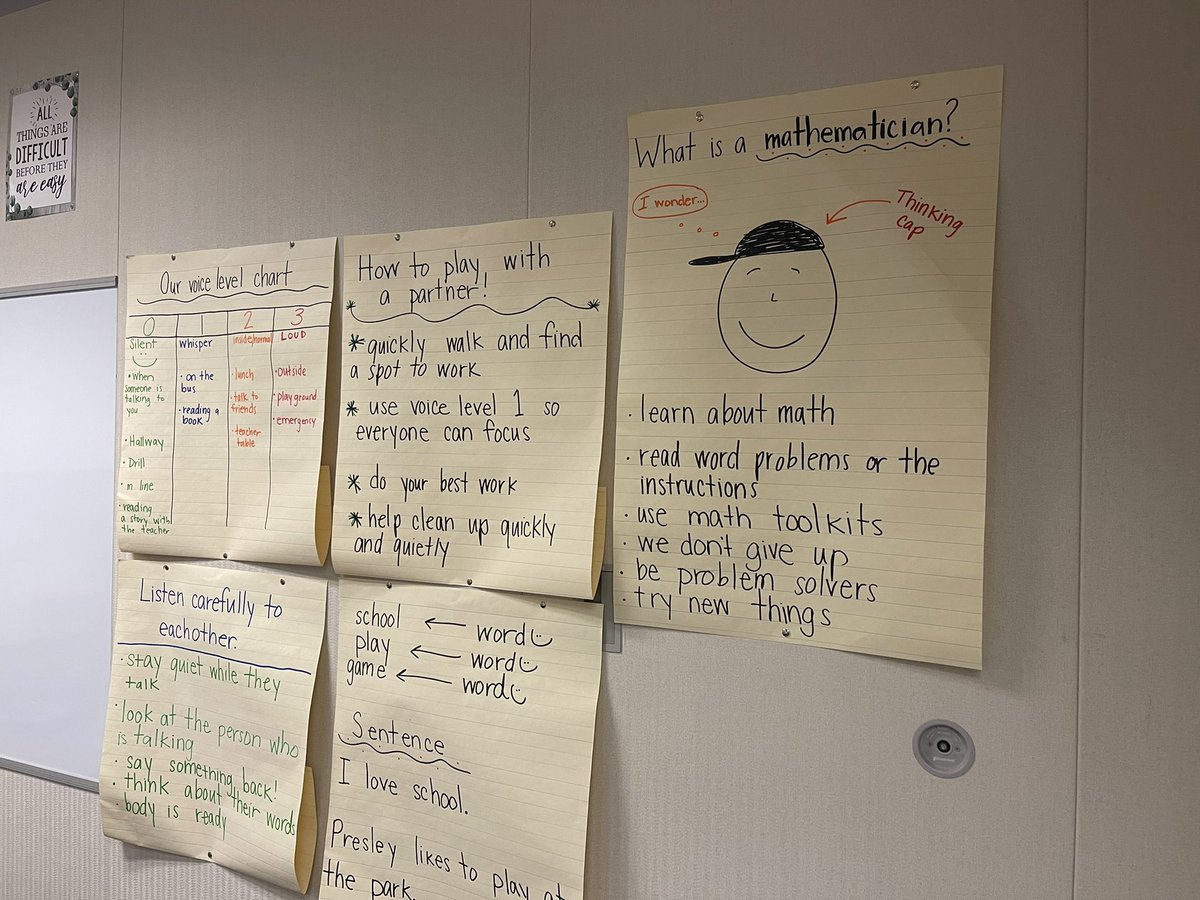 ALL
THINGS ARE
DIFFICULT
BEFORE THEY
are easy
Our voice level chart
0 1 2 3
Silent whisper inside/normal LOUD
• When
someone is
talking to
you
• Hallway
• Drill
• in line
• reading
a story with
the teacher
• on the
bus
• reading a
book
• lunch
• talk to
friends
• teacher
table
• outside
• playground
• emergency
How to play with
a partner!
* quickly walk and find
a spot to work
* use voice level 1 so
everyone can focus
* do your best work
* help clean up quickly
and quietly
What is a mathematician?
I wonder...
Thinking
cap
• learn about math
• read word problems or the
instructions
• use math toolkits
• we don't give up
• be problem solvers
• try new things
Listen carefully to
eachother.
• stay quiet while they
talk
• look at the person who
is talking
• say something back!
• think about their words
• body is ready
school ← word
play ← word
game ← word
Sentence
I love school.
Presley likes to play at
the park.